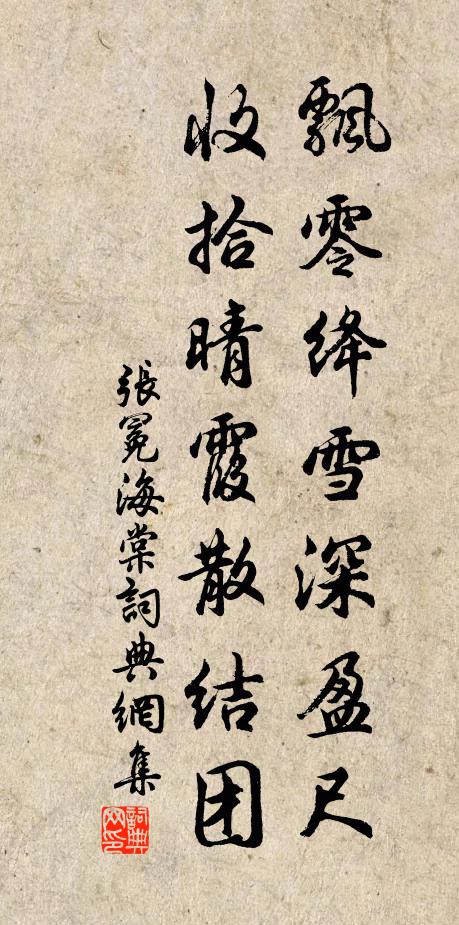 飄零絳雪深盈尺
收拾晴霞散结团
張冕海棠詞典網集
詞典
网印